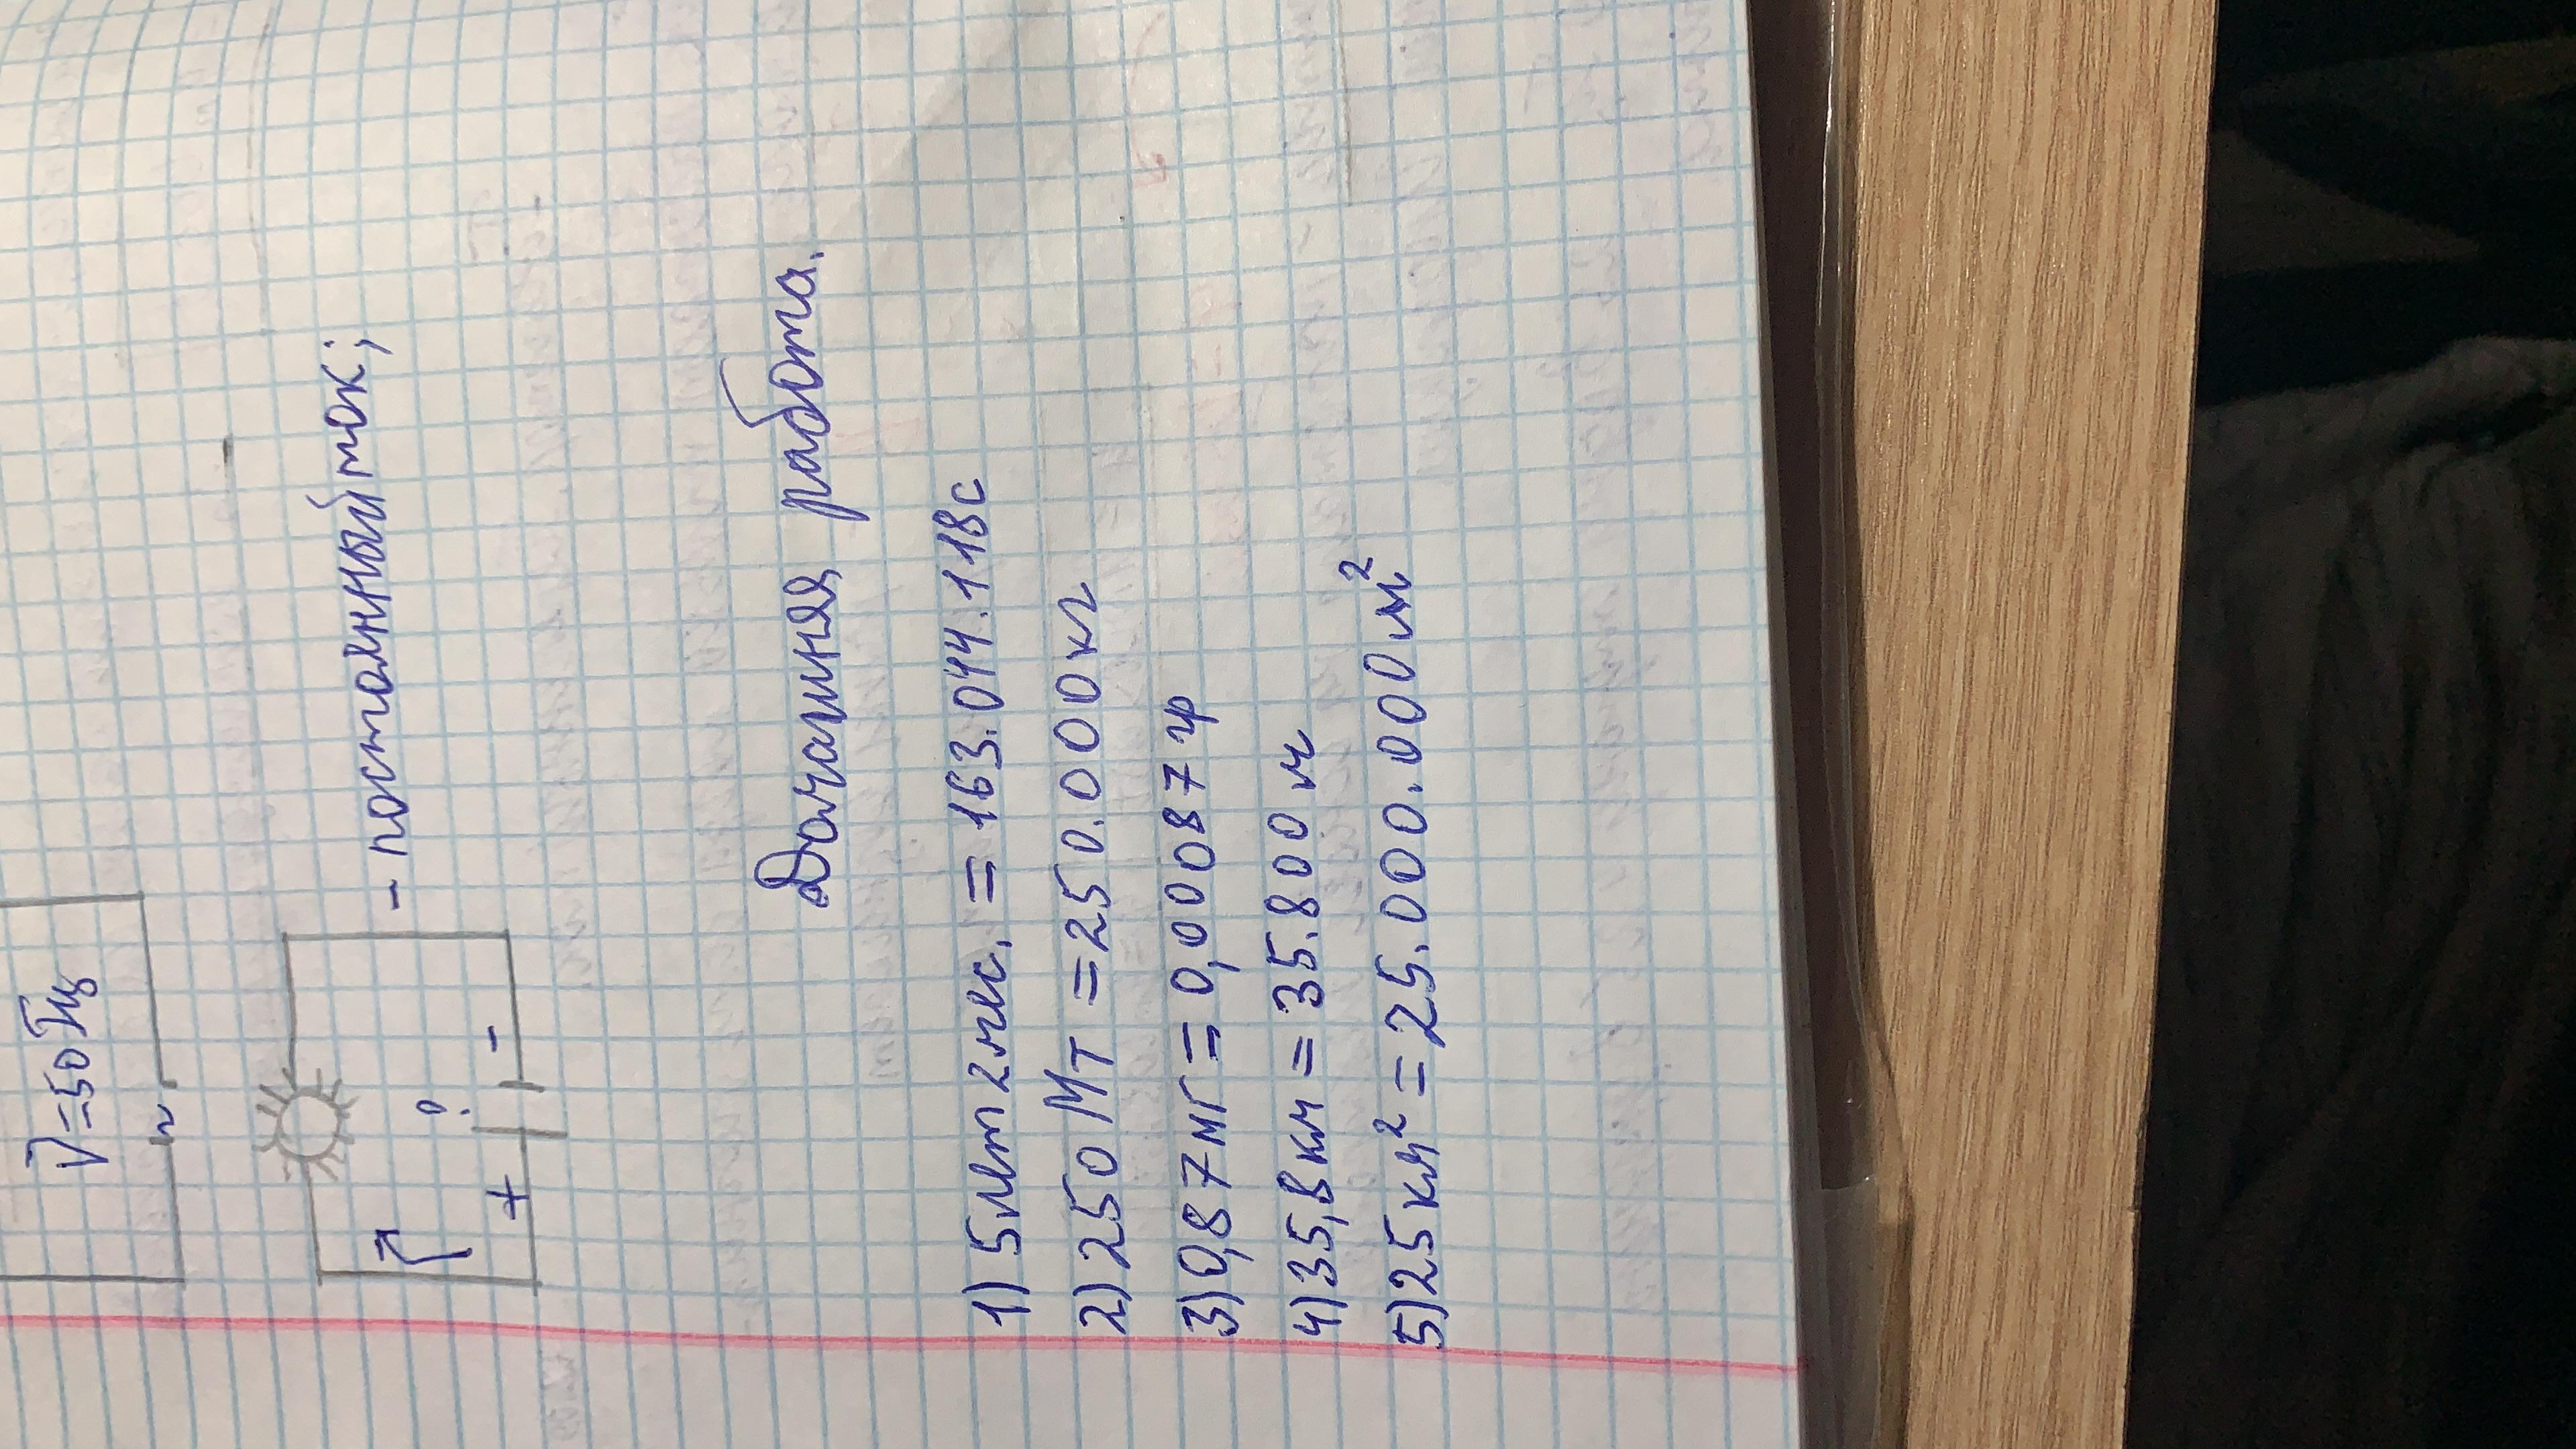 ν=50Гц
~
i
+ -
- постоянный ток;
Домашняя работа.
1) 5 лет 2 мес. = 163.044.118с
2) 250 Мт = 250.000кг
3) 0,87мг = 0,00087гр
4) 35,8км = 35.800м
5) 25км² = 25.000.000м²